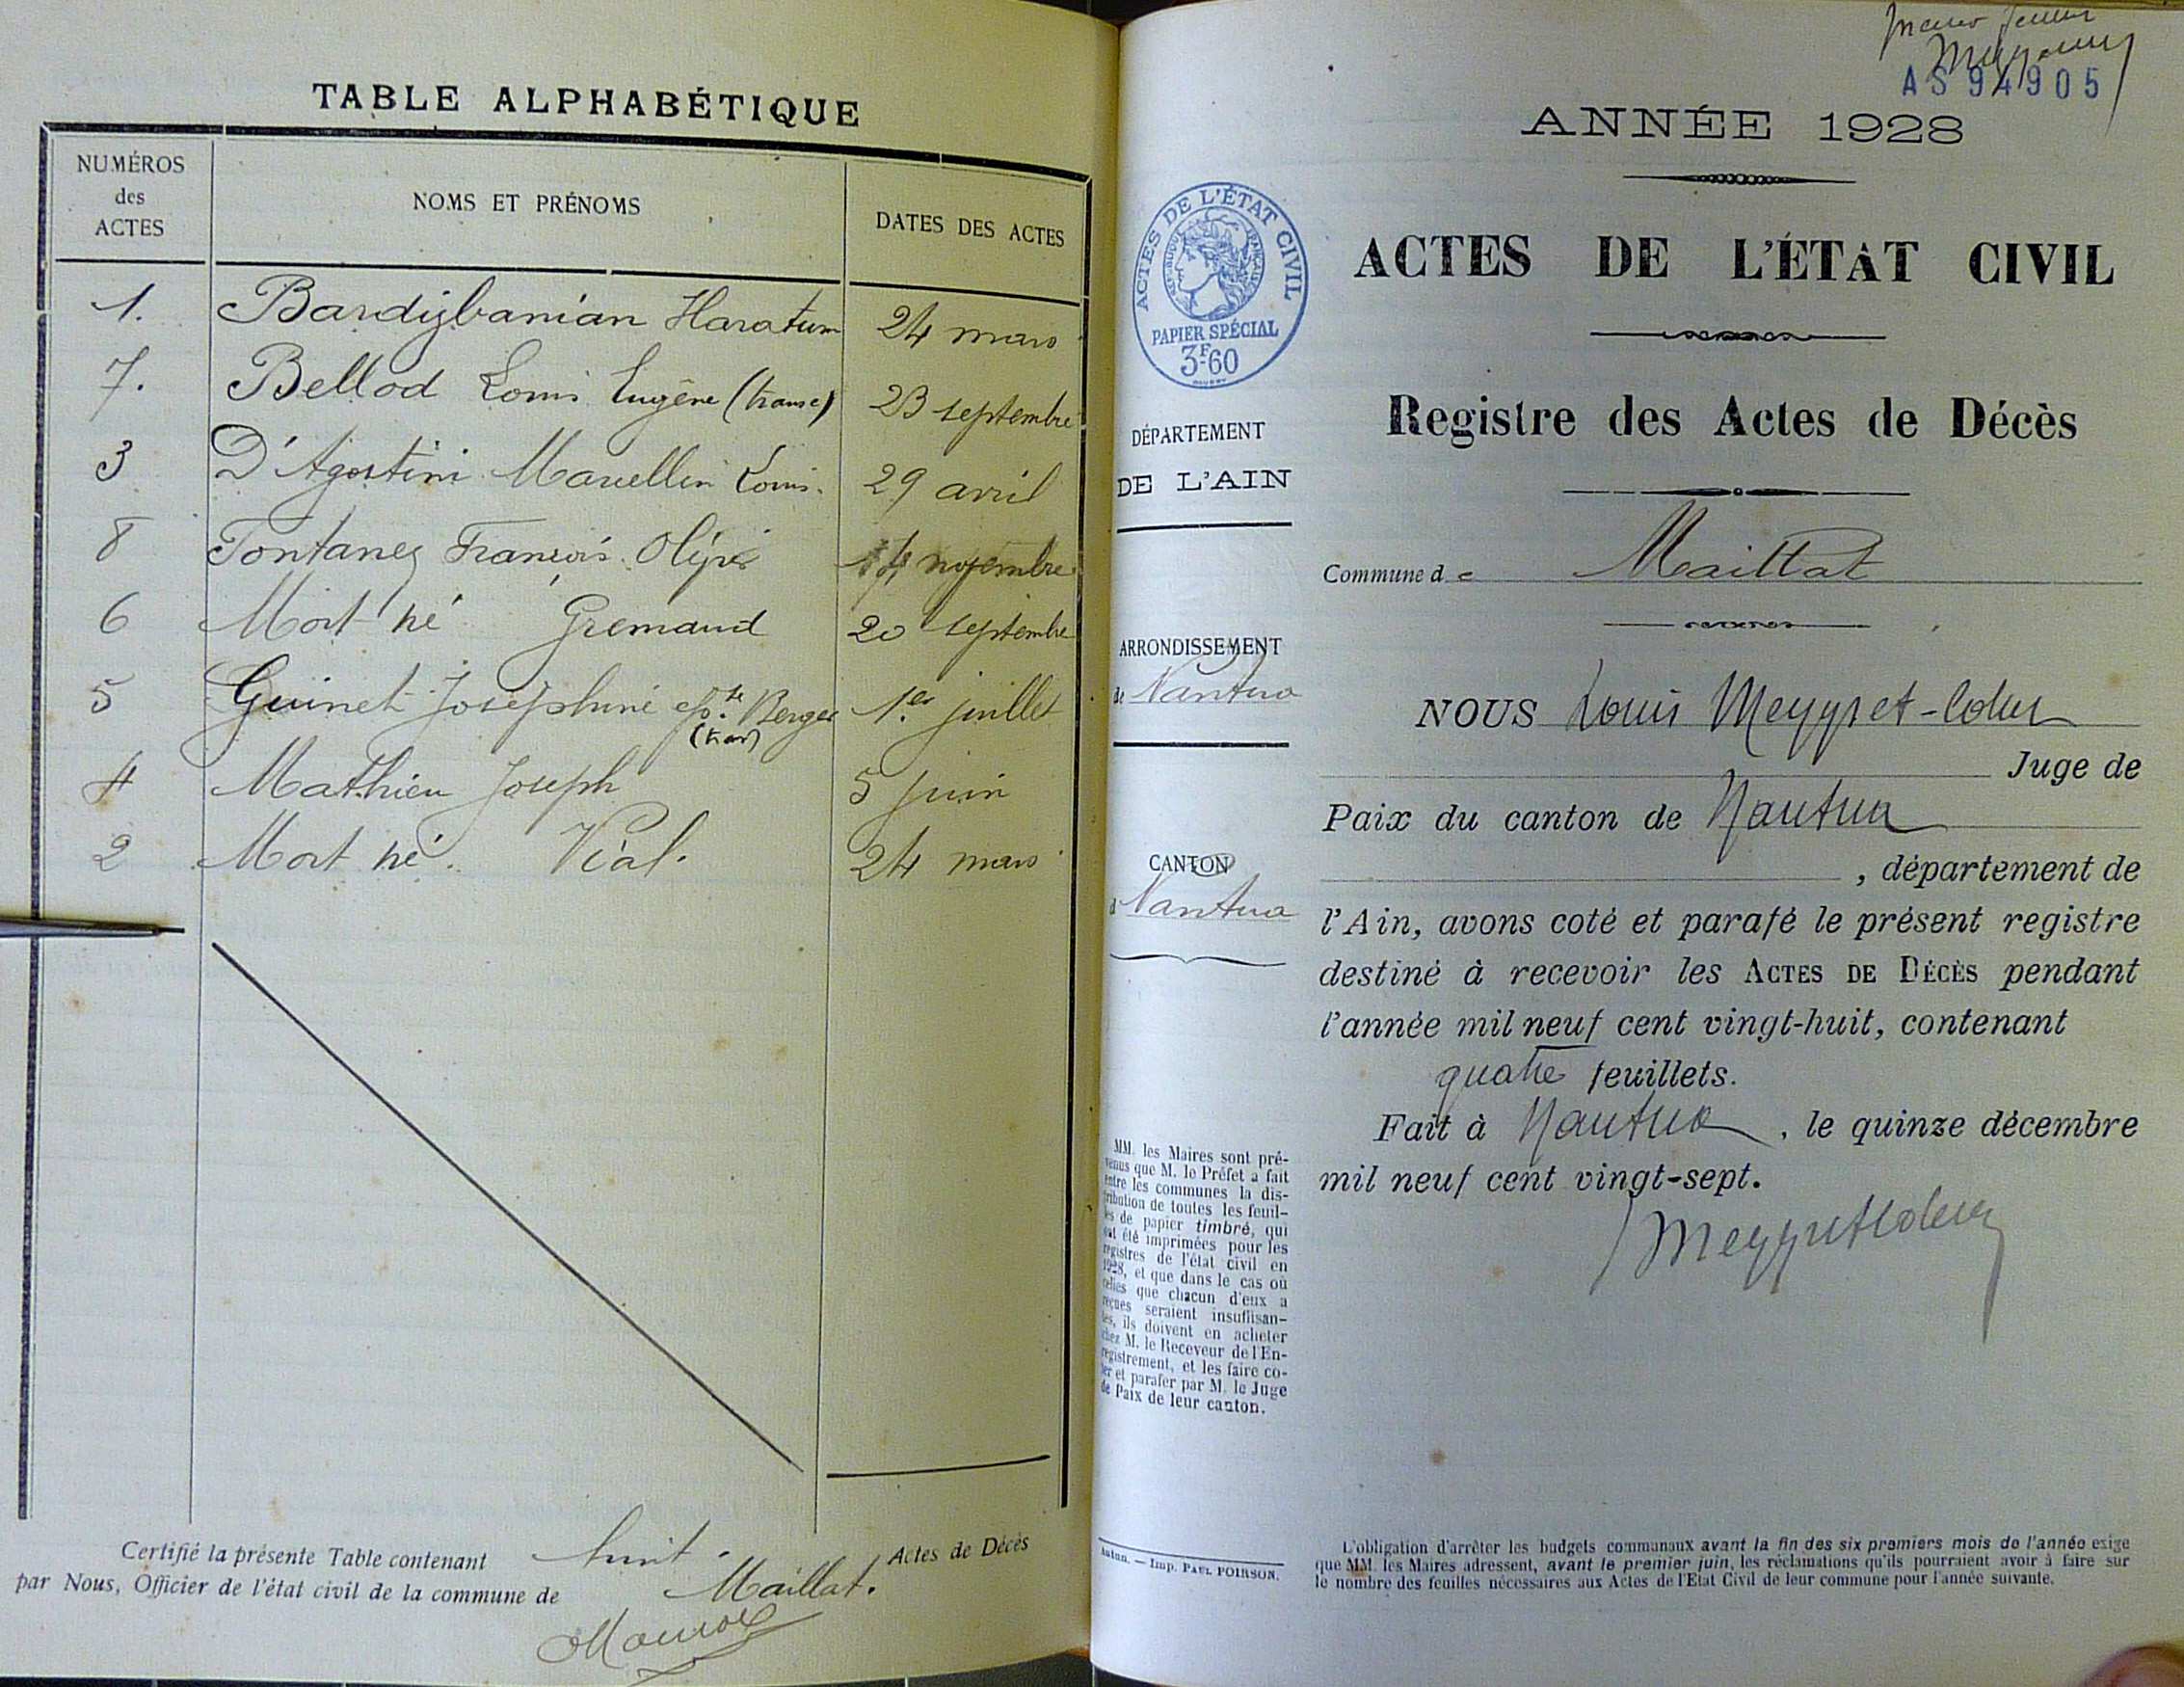 TABLE ALPHABÉTIQUE
NUMÉROS des ACTES
NOMS ET PRÉNOMS
DATES DES ACTES
1. Bardizbanian Haratum 24 mars
7. Bellod Louis Eugène (transc) 23 septembre
3 D'Agostini Marcellin Louis. 29 avril
8 Fontanez François 14 novembre
6 Mort né Gremaud 20 septembre
5 Guinet Joséphine épse Berger 1er juillet
(tran)
4 Mathieu Joseph 5 juin
2 Mort né. Vial. 24 mars
Certifié la présente Table contenant huit. Actes de Décès
par Nous, Officier de l'état civil de la commune de Maillat.
AS 94905
ANNÉE 1928
ACTES DE L'ÉTAT CIVIL
RÉPUBLIQUE FRANÇAISE
PAPIER SPÉCIAL
3F60
ACTES DE L'ÉTAT CIVIL
Registre des Actes de Décès
DÉPARTEMENT
DE L'AIN
Commune de Maillat
ARRONDISSEMENT
de Nantua
NOUS Louis Meygret-Collet
Juge de
Paix du canton de Nantua
CANTON
d Nantua
, département de
l'Ain, avons coté et parafé le présent registre
destiné à recevoir les ACTES DE DÉCÈS pendant
l'année mil neuf cent vingt-huit, contenant
quatre feuillets.
Fait à Nantua, le quinze décembre
mil neuf cent vingt-sept.
MM. les Maires sont pré-
venus que M. le Préfet a fait
entre les communes la dis-
tribution de toutes les feuil-
les de papier timbré, qui
ont été imprimées pour les
registres de l'état civil en
1928, et que dans le cas où
celles que chacun d'eux a
reçues seraient insuffisan-
tes, ils doivent en acheter
chez M. le Receveur de l'En-
registrement, et les faire co-
ter et parafer par M. le Juge
de Paix de leur canton.
Autun. — Imp. PAUL POIRSON.
L'obligation d'arrêter les budgets communaux avant la fin des six premiers mois de l'année exige
que MM. les Maires adressent, avant le premier juin, les réclamations qu'ils pourraient avoir à faire sur
le nombre des feuilles nécessaires aux Actes de l'Etat Civil de leur commune pour l'année suivante.